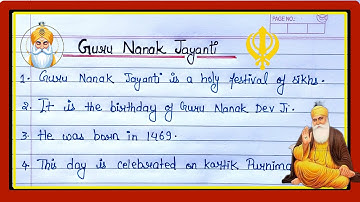 PAGE NO.:
Guru Nanak Jayanti
1. Guru Nanak Jayanti is a holy festival of sikhs.
2. It is the birthday of Guru Nanak Dev Ji.
3. He was born in 1469.
4. This day is celebrated on Kartik Purnima